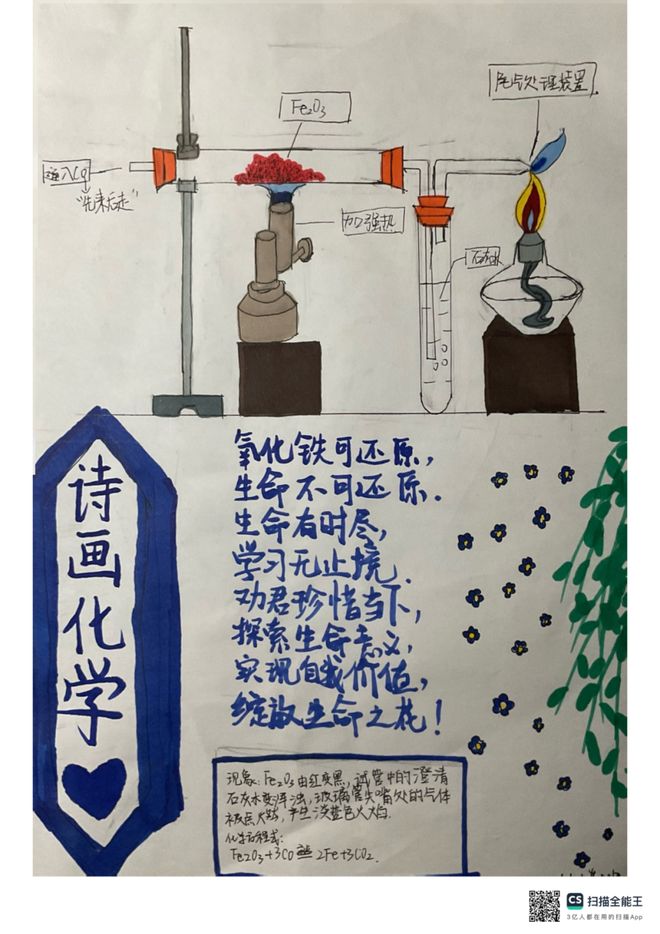 Fe₂O₃
尾气处理装置
通入CO
"先来后走"
加强热
石灰水
诗画化学
氧化铁可还原，
生命不可还原.
生命有时尽，
学习无止境.
劝君珍惜当下，
探索生命意义，
实现自我价值，
绽放生命之花！
现象：Fe₂O₃由红变黑，试管中的澄清
石灰水变浑浊，玻璃管尖嘴处的气体
被点燃，产生淡蓝色火焰.
化学方程式：
Fe₂O₃+3CO 高温 2Fe+3CO₂.
CS 扫描全能王
3亿人都在用的扫描App